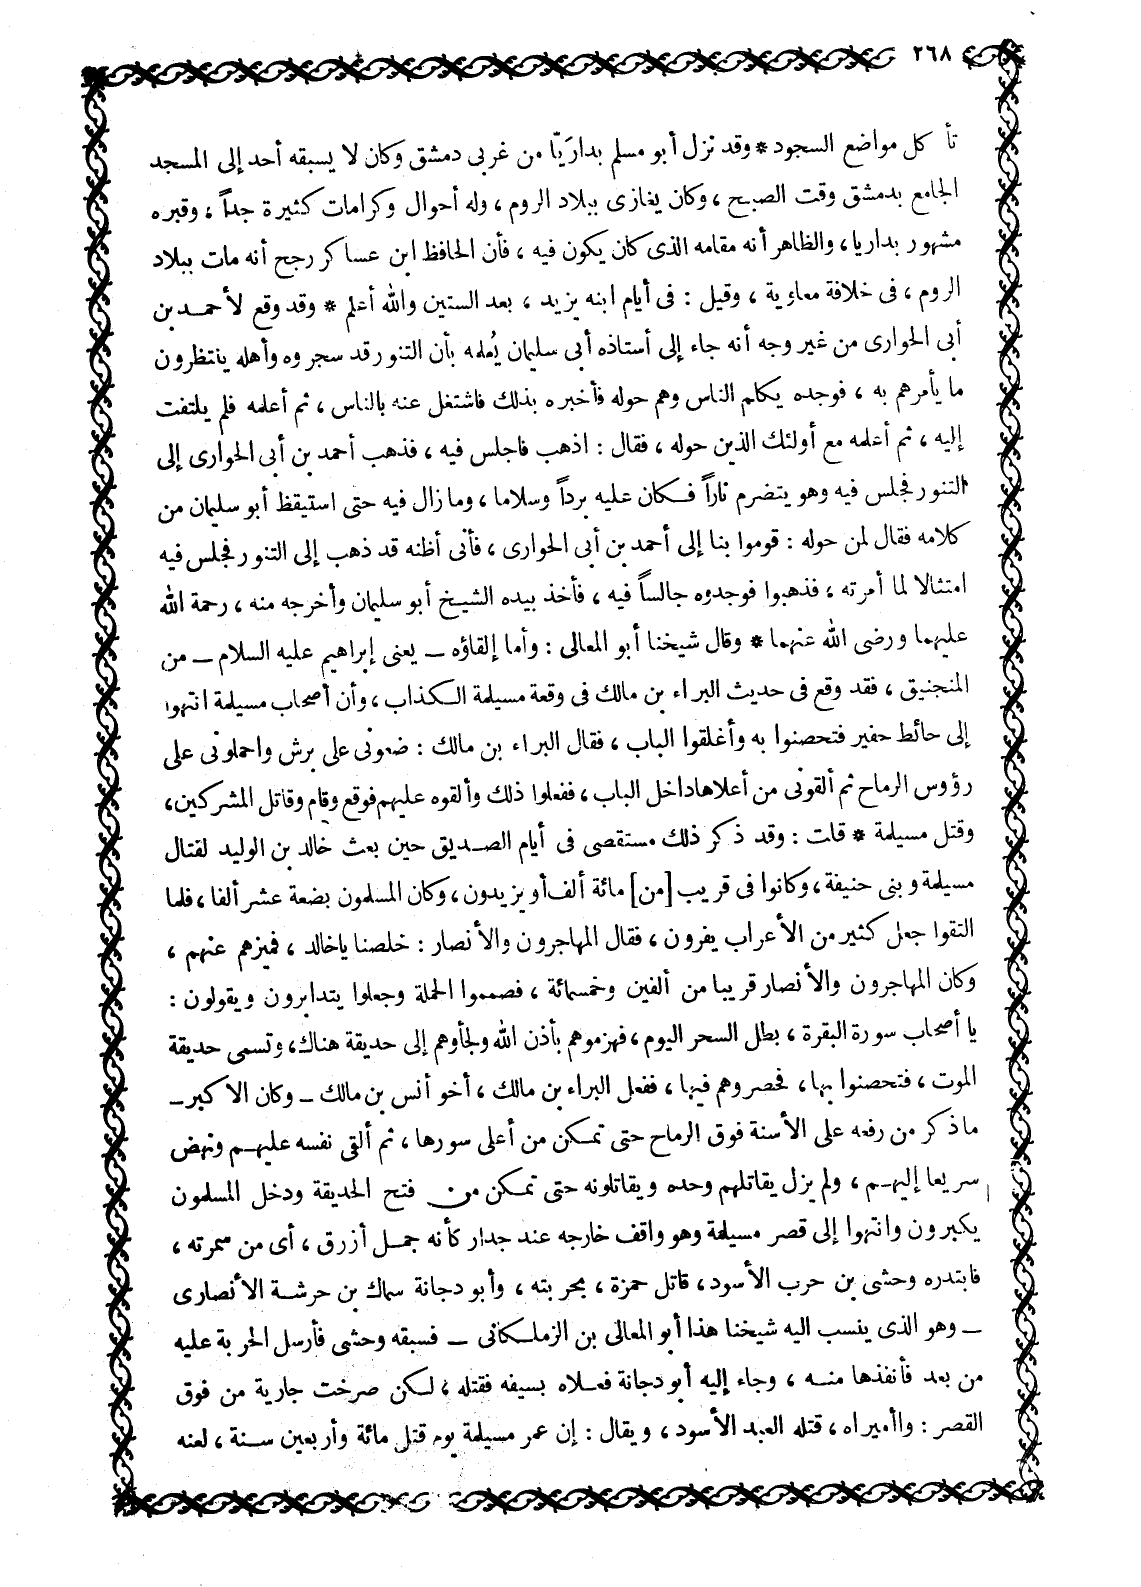 ٢٦٨
تأ كل مواضع السجود * وقد نزل أبو مسلم بداريّا من غربى دمشق وكان لا يسبقه أحد إلى المسجد
الجامع بدمشق وقت الصبح ، وكان يغازى ببلاد الروم ، وله أحوال وكرامات كثيرة جداً ، وقبره
مشهور بداريا ، والظاهر أنه مقامه الذى كان يكون فيه ، فأن الحافظ ابن عساكر رجح أنه مات ببلاد
الروم ، فى خلافة معاوية ، وقيل : فى أيام ابنه يزيد ، بعد الستين والله أعلم * وقد وقع لأحمد بن
أبى الحوارى من غير وجه أنه جاء إلى أستاذه أبى سليمان يُعلمه بأن التنور قد سجروه وأهله ينتظرون
ما يأمرهم به ، فوجده يكلم الناس وهم حوله فأخبره بذلك فاشتغل عنه بالناس ، ثم أعلمه فلم يلتفت
إليه ، ثم أعلمه مع أولئك الذين حوله ، فقال : اذهب فاجلس فيه ، فذهب أحمد بن أبى الحوارى إلى
التنور فجلس فيه وهو يتضرم ناراً فكان عليه برداً وسلاما ، وما زال فيه حتى استيقظ أبو سليمان من
كلامه فقال لمن حوله : قوموا بنا إلى أحمد بن أبى الحوارى ، فأنى أظنه قد ذهب إلى التنور فجلس فيه
امتثالا لما أمرته ، فذهبوا فوجدوه جالساً فيه ، فأخذ بيده الشيخ أبو سليمان وأخرجه منه ، رحمة الله
عليهما ورضى الله عنهما * وقال شيخنا أبو المعالى : وأما إلقاؤه ــ يعنى إبراهيم عليه السلام ــ من
المنجنيق ، فقد وقع فى حديث البراء بن مالك فى وقعة مسيلمة الكذاب ، وأن أصحاب مسيلمة انتهوا
إلى حائط حفير فتحصنوا به وأغلقوا الباب ، فقال البراء بن مالك : ضعونى على برش واحملونى على
رؤوس الرماح ثم ألقونى من أعلاها داخل الباب ، ففعلوا ذلك وألقوه عليهم فوقع وقام وقاتل المشركين ،
وقتل مسيلمة * قلت : وقد ذكر ذلك مستقصى فى أيام الصديق حين بعث خالد بن الوليد لقتال
مسيلمة وبنى حنيفة ، وكانوا فى قريب [من] مائة ألف أو يزيدون ، وكان المسلمون بضعة عشر ألفا ، فلما
التقوا جعل كثير من الأعراب يفرون ، فقال المهاجرون والأنصار : خلصنا ياخالد ، فميزهم عنهم ،
وكان المهاجرون والأنصار قريبا من ألفين وخمسمائة ، فصمموا الحملة وجعلوا يتدابرون ويقولون :
يا أصحاب سورة البقرة ، بطل السحر اليوم ، فهزموهم بأذن الله ولجأوهم إلى حديقة هناك ، وتسمى حديقة
الموت ، فتحصنوا بها ، فحصروهم فيها ، ففعل البراء بن مالك ، أخو أنس بن مالك ــ وكان الاكبر ــ
ماذكر من رفعه على الأسنة فوق الرماح حتى تمكن من أعلى سورها ، ثم ألقى نفسه عليهم ونهض
سريعا إليهم ، ولم يزل يقاتلهم وحده ويقاتلونه حتى تمكن من فتح الحديقة ودخل المسلمون
يكبرون وانتهوا إلى قصر مسيلمة وهو واقف خارجه عند جدار كأنه جمل أزرق ، أى من سمرته ،
فابتدره وحشى بن حرب الأسود ، قاتل حمزة ، بحربته ، وأبو دجانة سماك بن خرشة الأنصارى
ــ وهو الذى ينسب اليه شيخنا هذا أبو المعالى بن الزملكانى ــ فسبقه وحشى فأرسل الحربة عليه
من بعد فأنفذها منه ، وجاء إليه أبو دجانة فعلاه بسيفه فقتله ، لكن صرخت جارية من فوق
القصر : واأميراه ، قتله العبد الأسود ، ويقال : إن عمر مسيلمة يوم قتل مائة وأربعين سنة ، لعنه